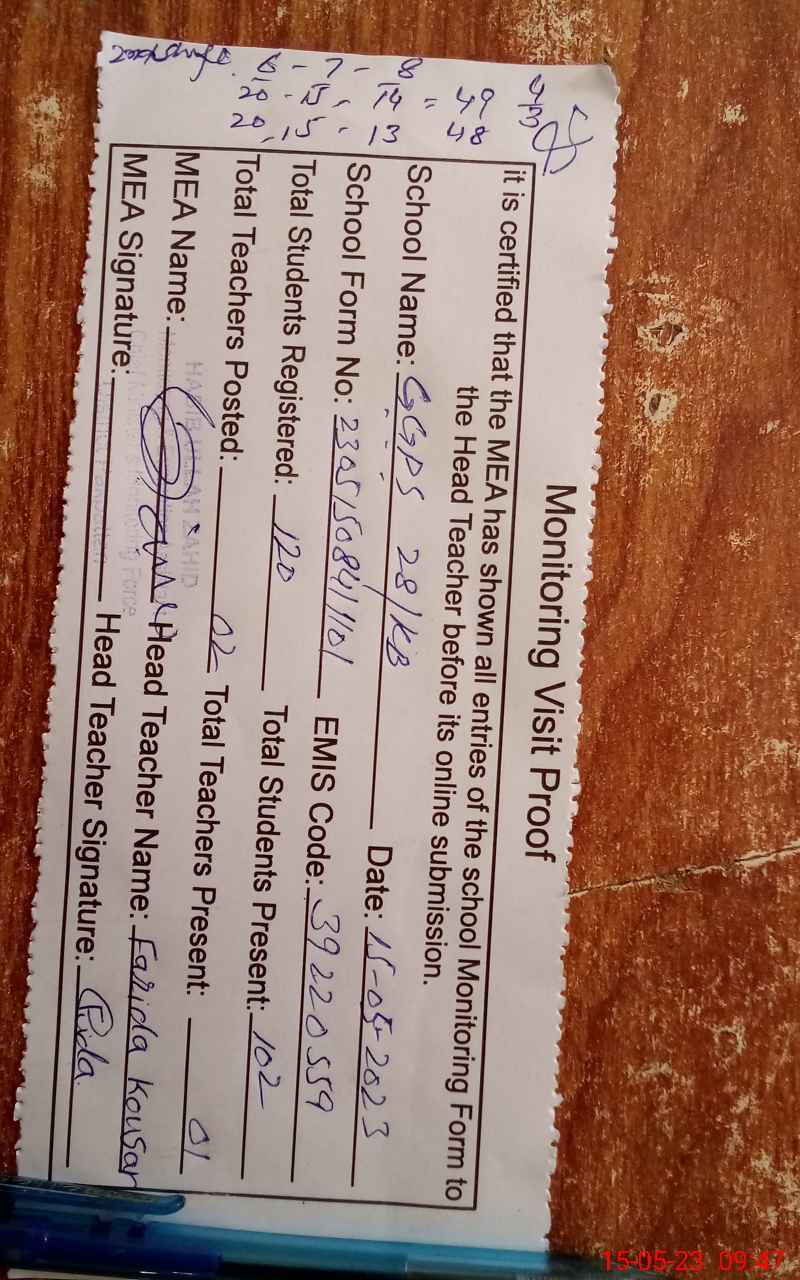 Monitoring Visit Proof
it is certified that the MEA has shown all entries of the school Monitoring Form to
the Head Teacher before its online submission.
School Name: GGPS 281KB Date: 15-05-2023
School Form No: EMIS Code: 39220559
Total Students Registered: 120 Total Students Present: 102
Total Teachers Posted: 02 Total Teachers Present: 01
MEA Name: Head Teacher Name: Farida Kousar
MEA Signature: Head Teacher Signature: Frida
HABIB ULLAH ZAHID
6 - 7 - 8
20 - 15 - 14 = 49
20, 15 - 13 48
15-05-23 09:47